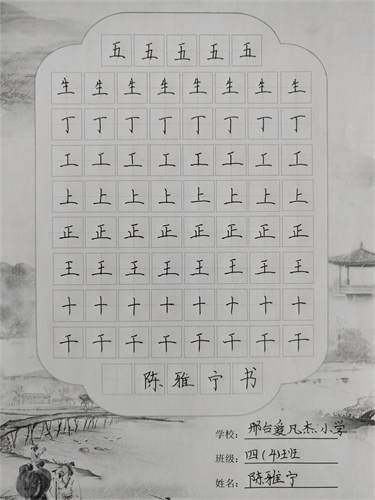 五五五五五
生生生生生生生生
丁丁丁丁丁丁丁丁
工工工工工工工工
上上上上上上上上
正正正正正正正正
王王王王王王王王
十十十十十十十十
干干干干干干干干
陈雅宁书
学校:邢台爱凡杰小学
班级:四(4)班
姓名:陈雅宁